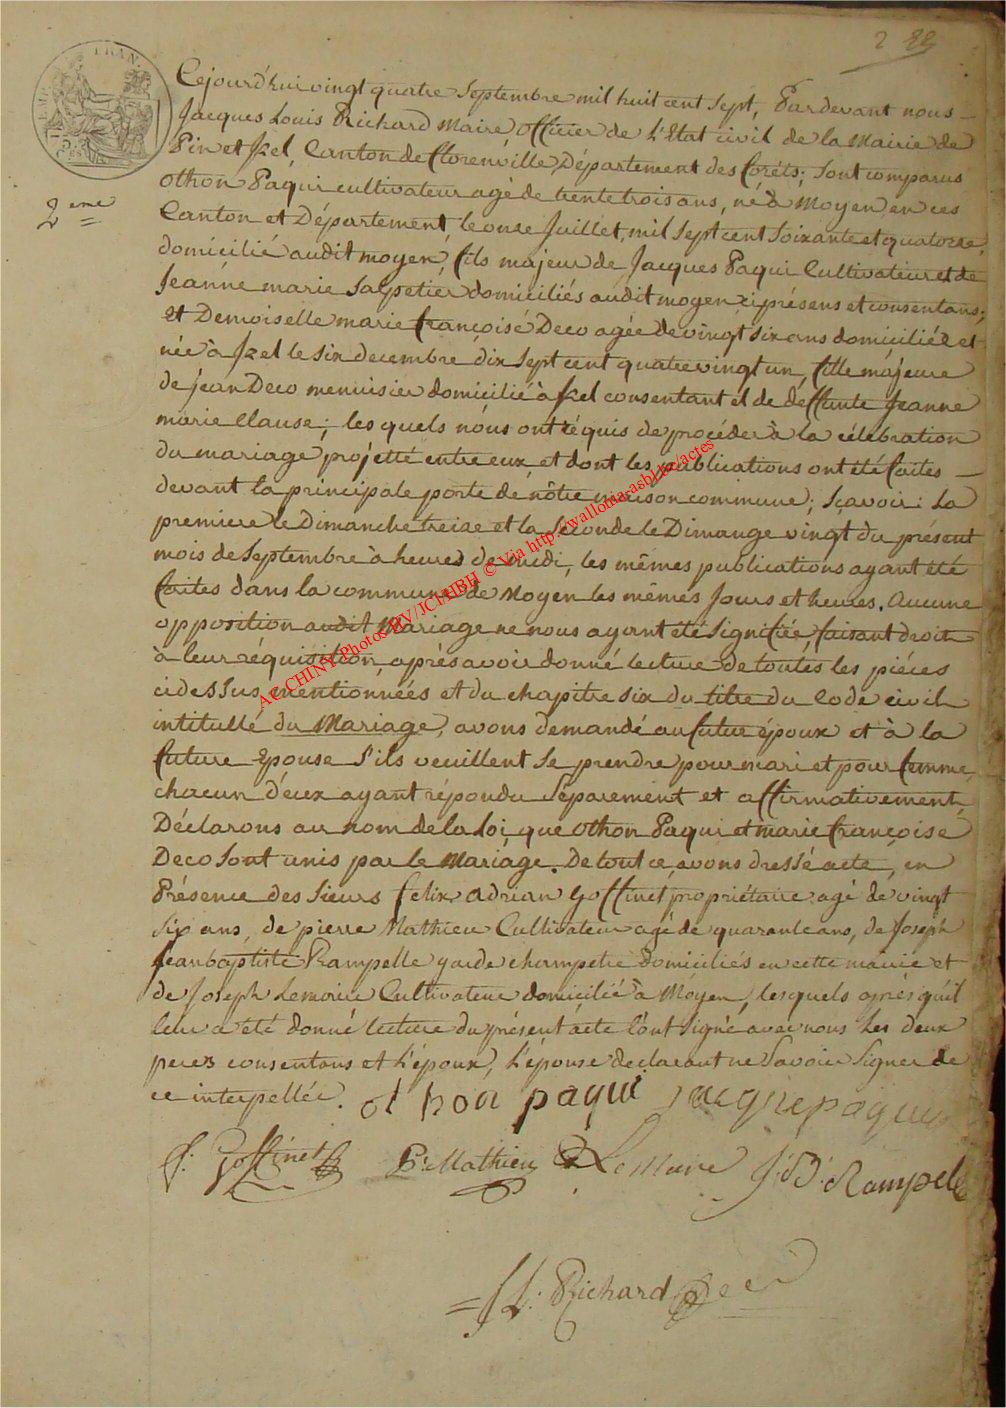 2 22
2eme
Cejourd'hui vingt quatre Septembre mil huit cent Sept, Pardevant nous
Jacques Louis Richard Maire officier de L'Etat civil de la Mairie de
Pin et Izel, Canton de florenville Département des foréts; Sont comparus
othon Paqui cultivateur agé de trente trois ans, né à Moyen en ces
Canton et Département, le onze Juillet, mil Sept cent Soixante et quatorze,
domicilié audit moyen, fils majeur de Jacques Paqui Cultivateur et de
Jeanne marie Salpetier domiciliés audit moyen ci présens et consentans;
et Demoiselle marie françoise Deco agée de vingt six ans domiciliée et
née à Izel le six decembre dix Sept cent quatrevingt un, fille majeure
de jean Deco menuisier domicilié à Izel consentant et de deffunte Jeanne
marie Clause; les quels nous ont réquis de procéder à la célébration
du mariage projetté entre eux et dont les publications ont été faites
devant la principale porte de nôtre maison commune; Sçavoir: La
premiere le Dimanche treize et la Seconde le Dimange vingt du présent
mois de Septembre à heures de midi, les mêmes publications ayant été
faites dans la commune de Moyen les mêmes Jours et heures. Aucune
opposition audit Mariage ne nous ayant été Signifiée, faisant droit
à leur réquisition, après avoir donné lecture de toutes les piéces
cidessus mentionnées et du chapitre six du titre du Code civil
intitullé du Mariage, avons demandé au futur époux et à la
future Epouse S'ils veuillent Se prendre pour mari et pour femme,
chacun D'eux ayant répondu Séparement et affirmativement,
Déclarons au nom de la Loi, que othon Paqui et marie françoise
Deco Sont unis par le Mariage. De tout ce, avons dressé acte, en
Présence des Sieurs felix adrian Goffinet propriétaire agé de vingt
Six ans, de pierre Mathieu Cultivateur agé de quarante ans, de Joseph
Jeanbaptiste Rampelle garde champetre domiciliés en cette mairie et
de Joseph Lemaire Cultivateur domicilié à Moyen, lesquels après qu'il
leur a été donné lecture du présent acte l'ont Signé avec nous Les deux
peres consentans et L'époux, L'épouse declarant ne Savoir Signer de
ce interpellée. othon paqui Jacque paqui
f: Goffinet P: Mathieu Le Maire J: B: Rampele
JL: Richard Deco
AE CHINY Photos RV/JCI/HBH © Via http://wallonia-asbl.be/actes